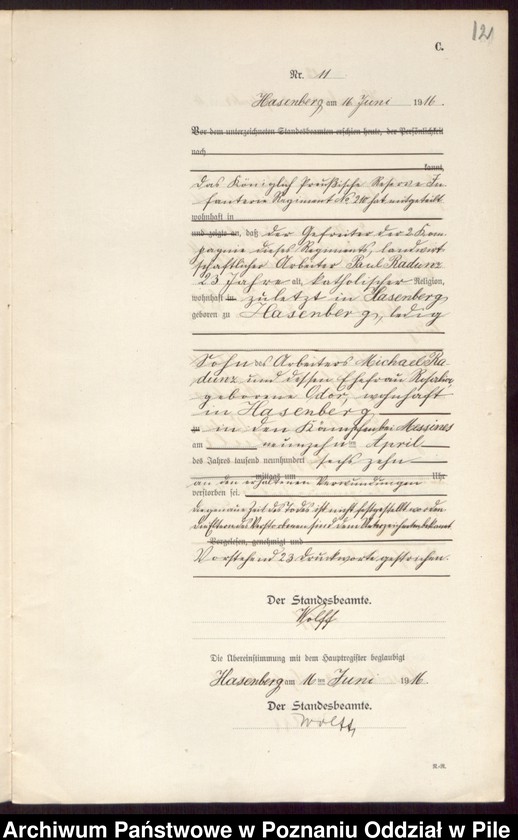 12
C.
Nr. 11
Hasenberg am 16 Juni 1916.
Vor dem unterzeichneten Standesbeamten erschien heute, der Persönlichkeit
nach
kannt,
das Königlich Preußische Reserve In-
fanterie Regiment No 210 hat mitgeteilt
wohnhaft in
und zeigte an, daß der Gefreiter der 2 Kom-
pagnie dieses Regiments, landwirt-
schaftlicher Arbeiter Paul Radunz
23 Jahre alt, katholischer Religion,
wohnhaft in zuletzt in Hasenberg
geboren zu Hasenberg, ledig
Sohn des Arbeiters Michael Ra-
dunz und dessen Ehefrau
geborene Odor, wohnhaft
in Hasenberg
in den Kämpfen bei Messines
am neunzehn April
des Jahres tausend neunhundert sechs zehn
mittags um Uhr
an den erhaltenen Verwundungen
verstorben sei.
die genaue Zeit des Todes ist nicht festgestellt worden
die Eltern des Verstorbenen sind dem bekannt
Vorgelesen, genehmigt und
Vorstehend 23 Druckworte gestrichen.
Der Standesbeamte.
Wolff
Die Übereinstimmung mit dem Hauptregister beglaubigt
Hasenberg am 16ten Juni 1916.
Der Standesbeamte.
Wolff
Archiwum Państwowe w Poznaniu Oddział w Pile